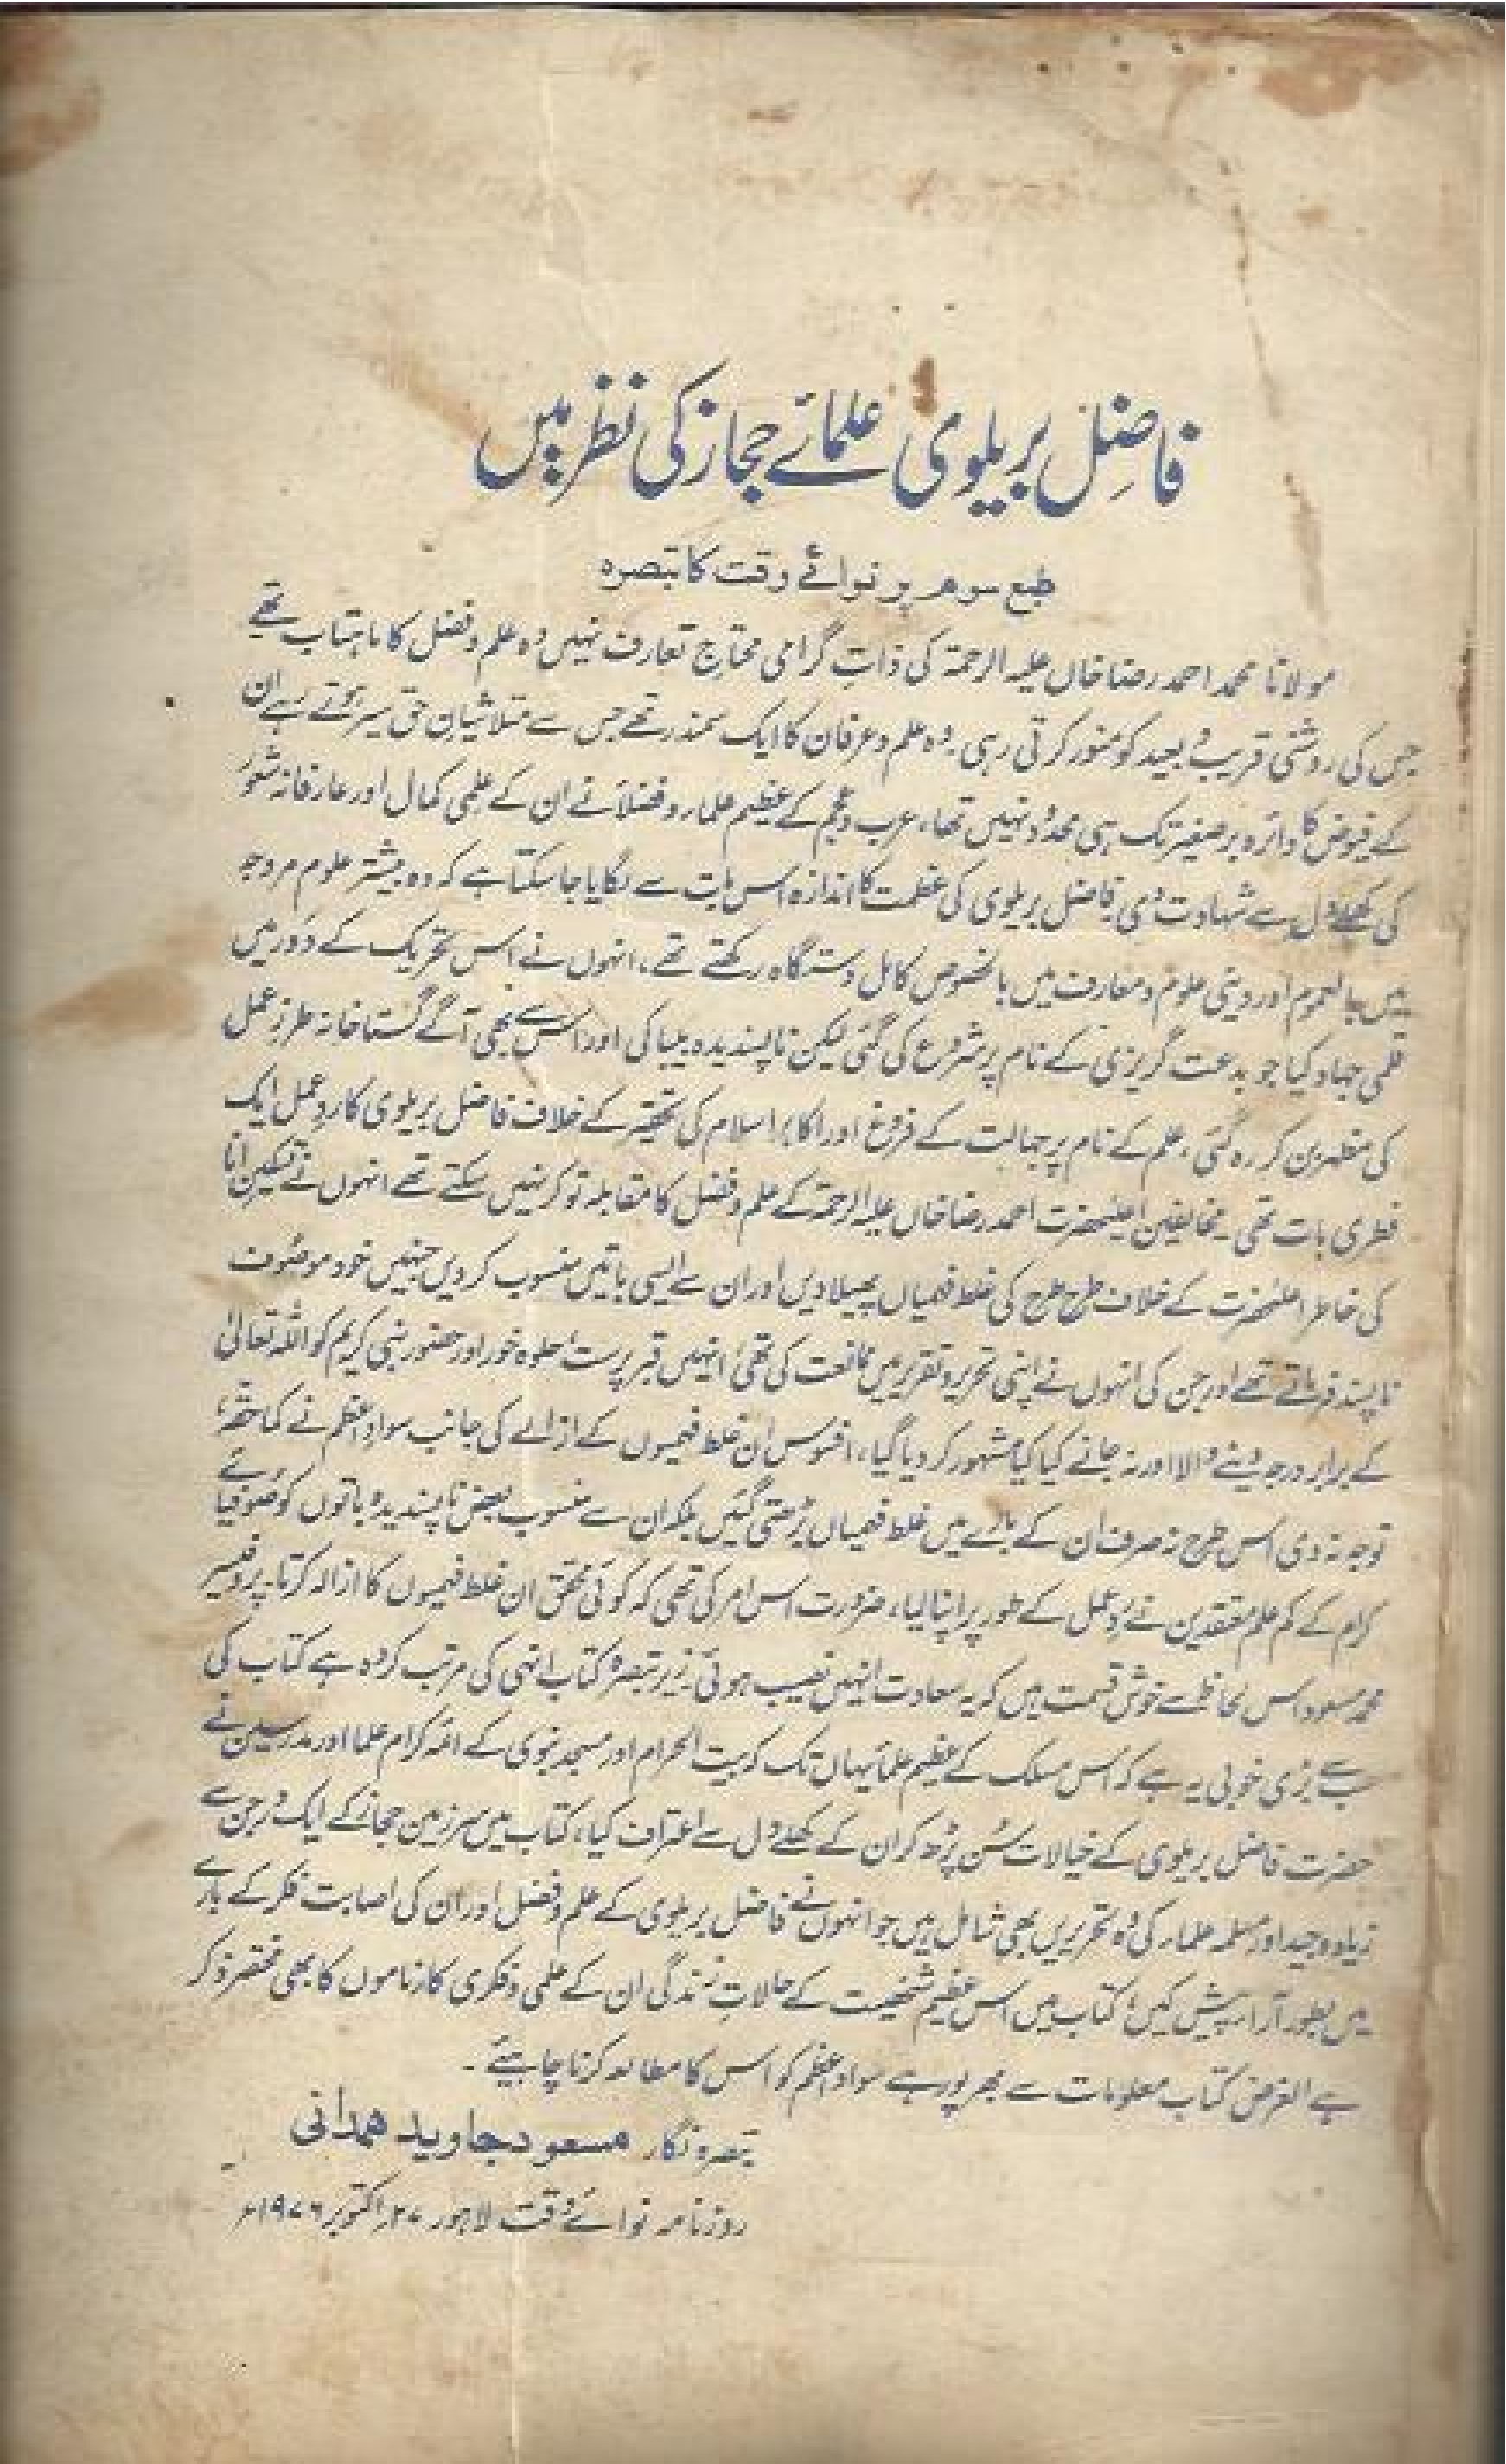 فاضل بریلوی علمائے حجاز کی نظر میں
طبع سوم پر نوائے وقت کا تبصرہ
مولانا محمد احمد رضا خاں علیہ الرحمۃ کی ذاتِ گرامی محتاجِ تعارف نہیں وہ علم و فضل کا ماہتاب تھے
جس کی روشنی قریب و بعید کو منور کرتی رہی۔ وہ علم و عرفان کا ایک سمندر تھے جس سے متلاشیانِ حق سیر ہوتے رہے ان
کے فیوض کا دائرہ برصغیر تک ہی محدود نہیں تھا، عرب و عجم کے عظیم علماء و فضلا نے ان کے علمی کمال اور عارفانہ شعور
کی کھلے دل سے شہادت دی۔ فاضل بریلوی کی عظمت کا اندازہ اس بات سے لگایا جا سکتا ہے کہ وہ بیشتر علوم مروجہ
میں بالعموم اور دینی علوم و معارف میں بالخصوص کامل دستگاہ رکھتے تھے، انہوں نے اس تحریک کے دور میں
قلمی جہاد کیا جو بدعت گریزی کے نام پر شروع کی گئی لیکن ناپسندیدہ بیباکی اور اس سے بھی آگے گستاخانہ طرزِ عمل
کی مظہر بن کر رہ گئی، علم کے نام پر جہالت کے فروغ اور اکابر اسلام کی تحقیر کے خلاف فاضل بریلوی کا ردِ عمل ایک
فطری بات تھی۔ مخالفین اعلیٰحضرت احمد رضا خاں علیہ الرحمۃ کے علم و فضل کا مقابلہ تو کر نہیں سکتے تھے انہوں نے تسکین انا
کی خاطر اعلیٰحضرت کے خلاف طرح طرح کی غلط فہمیاں پھیلا دیں اور ان سے ایسی باتیں منسوب کر دیں جنہیں خود موصوف
ناپسند فرماتے تھے اور جن کی انہوں نے اپنی تحریر و تقریر میں ممانعت کی تھی، انہیں قبر پرست، حلوہ خور اور حضور نبی کریم کو اللہ تعالیٰ
کے برابر درجہ دینے والا اور نہ جانے کیا کیا مشہور کر دیا گیا، افسوس ان غلط فہمیوں کے ازالے کی جانب سوادِ اعظم نے کما حقہٗ
توجہ نہ دی اس طرح نہ صرف ان کے بارے میں غلط فہمیاں بڑھتی گئیں بلکہ ان سے منسوب بعض ناپسندیدہ باتوں کو صوفیائے
کرام کے کم علم معتقدین نے ردِ عمل کے طور پر اپنا لیا، ضرورت اس امر کی تھی کہ کوئی محقق ان غلط فہمیوں کا ازالہ کرتا۔ پروفیسر
محمد مسعود اس لحاظ سے خوش قسمت ہیں کہ یہ سعادت انہیں نصیب ہوئی زیرِ تبصرہ کتاب انہی کی مرتب کردہ ہے کتاب کی
سب سے بڑی خوبی یہ ہے کہ اس مسلک کے عظیم علما یہاں تک کہ بیت الحرام اور مسجد نبوی کے ائمہ کرام علما اور مدرسین نے
حضرت فاضل بریلوی کے خیالات سُن پڑھ کر ان کے کھلے دل سے اعتراف کیا، کتاب میں سرزمین حجاز کے ایک درجن سے
زیادہ جید اور مسلمہ علماء کی وہ تحریریں بھی شامل ہیں جو انہوں نے فاضل بریلوی کے علم و فضل اور ان کی اصابت فکر کے بارے
میں بطور آراء پیش کیں؛ کتاب میں اس عظیم شخصیت کے حالاتِ زندگی ان کے علمی و فکری کارناموں کا بھی مختصر ذکر
ہے الغرض کتاب معلومات سے بھرپور ہے سوادِ اعظم کو اس کا مطالعہ کرنا چاہیئے۔
تبصرہ نگار مسعود جاوید ھمدانی
روزنامہ نوائے وقت لاہور ۲۷؍اکتوبر ۱۹۷۶ء